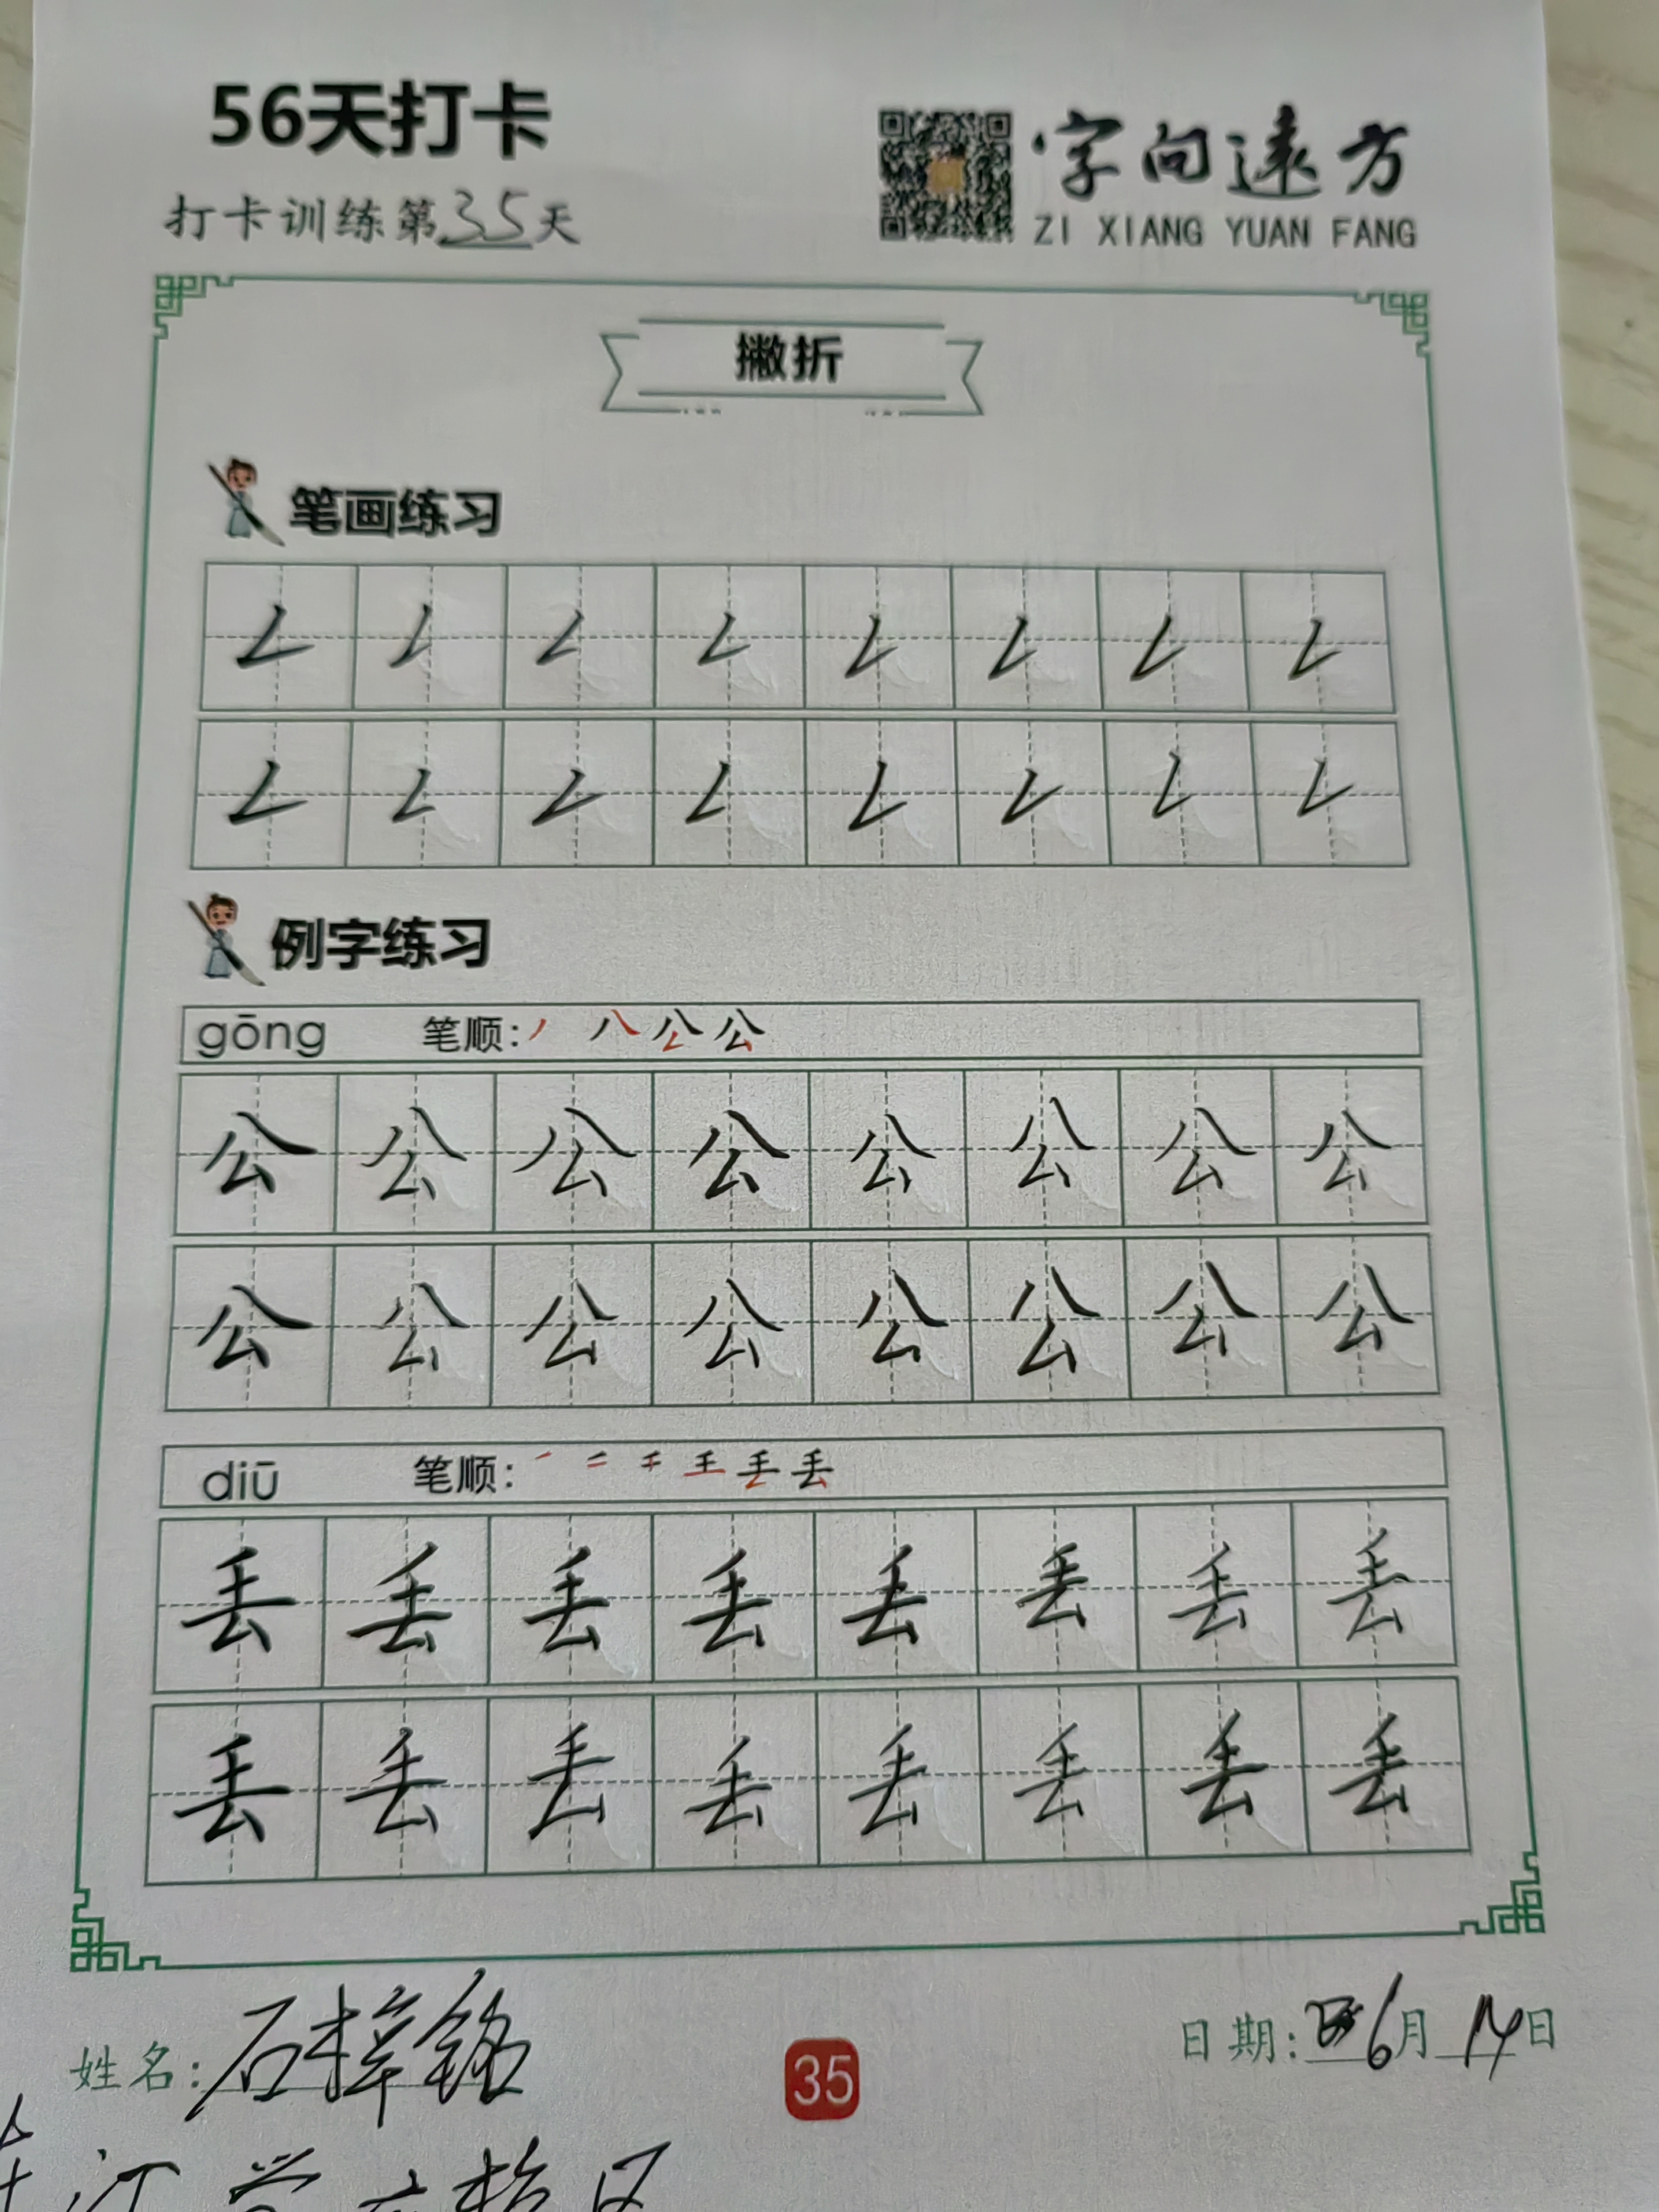 56天打卡
打卡训练第35天
字向远方
ZI XIANG YUAN FANG
撇折
笔画练习
𠃋 𠃋 𠃋 𠃋 𠃋 𠃋 𠃋 𠃋
𠃋 𠃋 𠃋 𠃋 𠃋 𠃋 𠃋 𠃋
例字练习
gōng 笔顺:丿 八 公 公
公 公 公 公 公 公 公 公
公 公 公 公 公 公 公 公
diū 笔顺: 一 二 千 王 丢 丢
丢 丢 丢 丢 丢 丢 丢 丢
丢 丢 丢 丢 丢 丢 丢 丢
姓名:石梓铭
35
日期: 6月14日